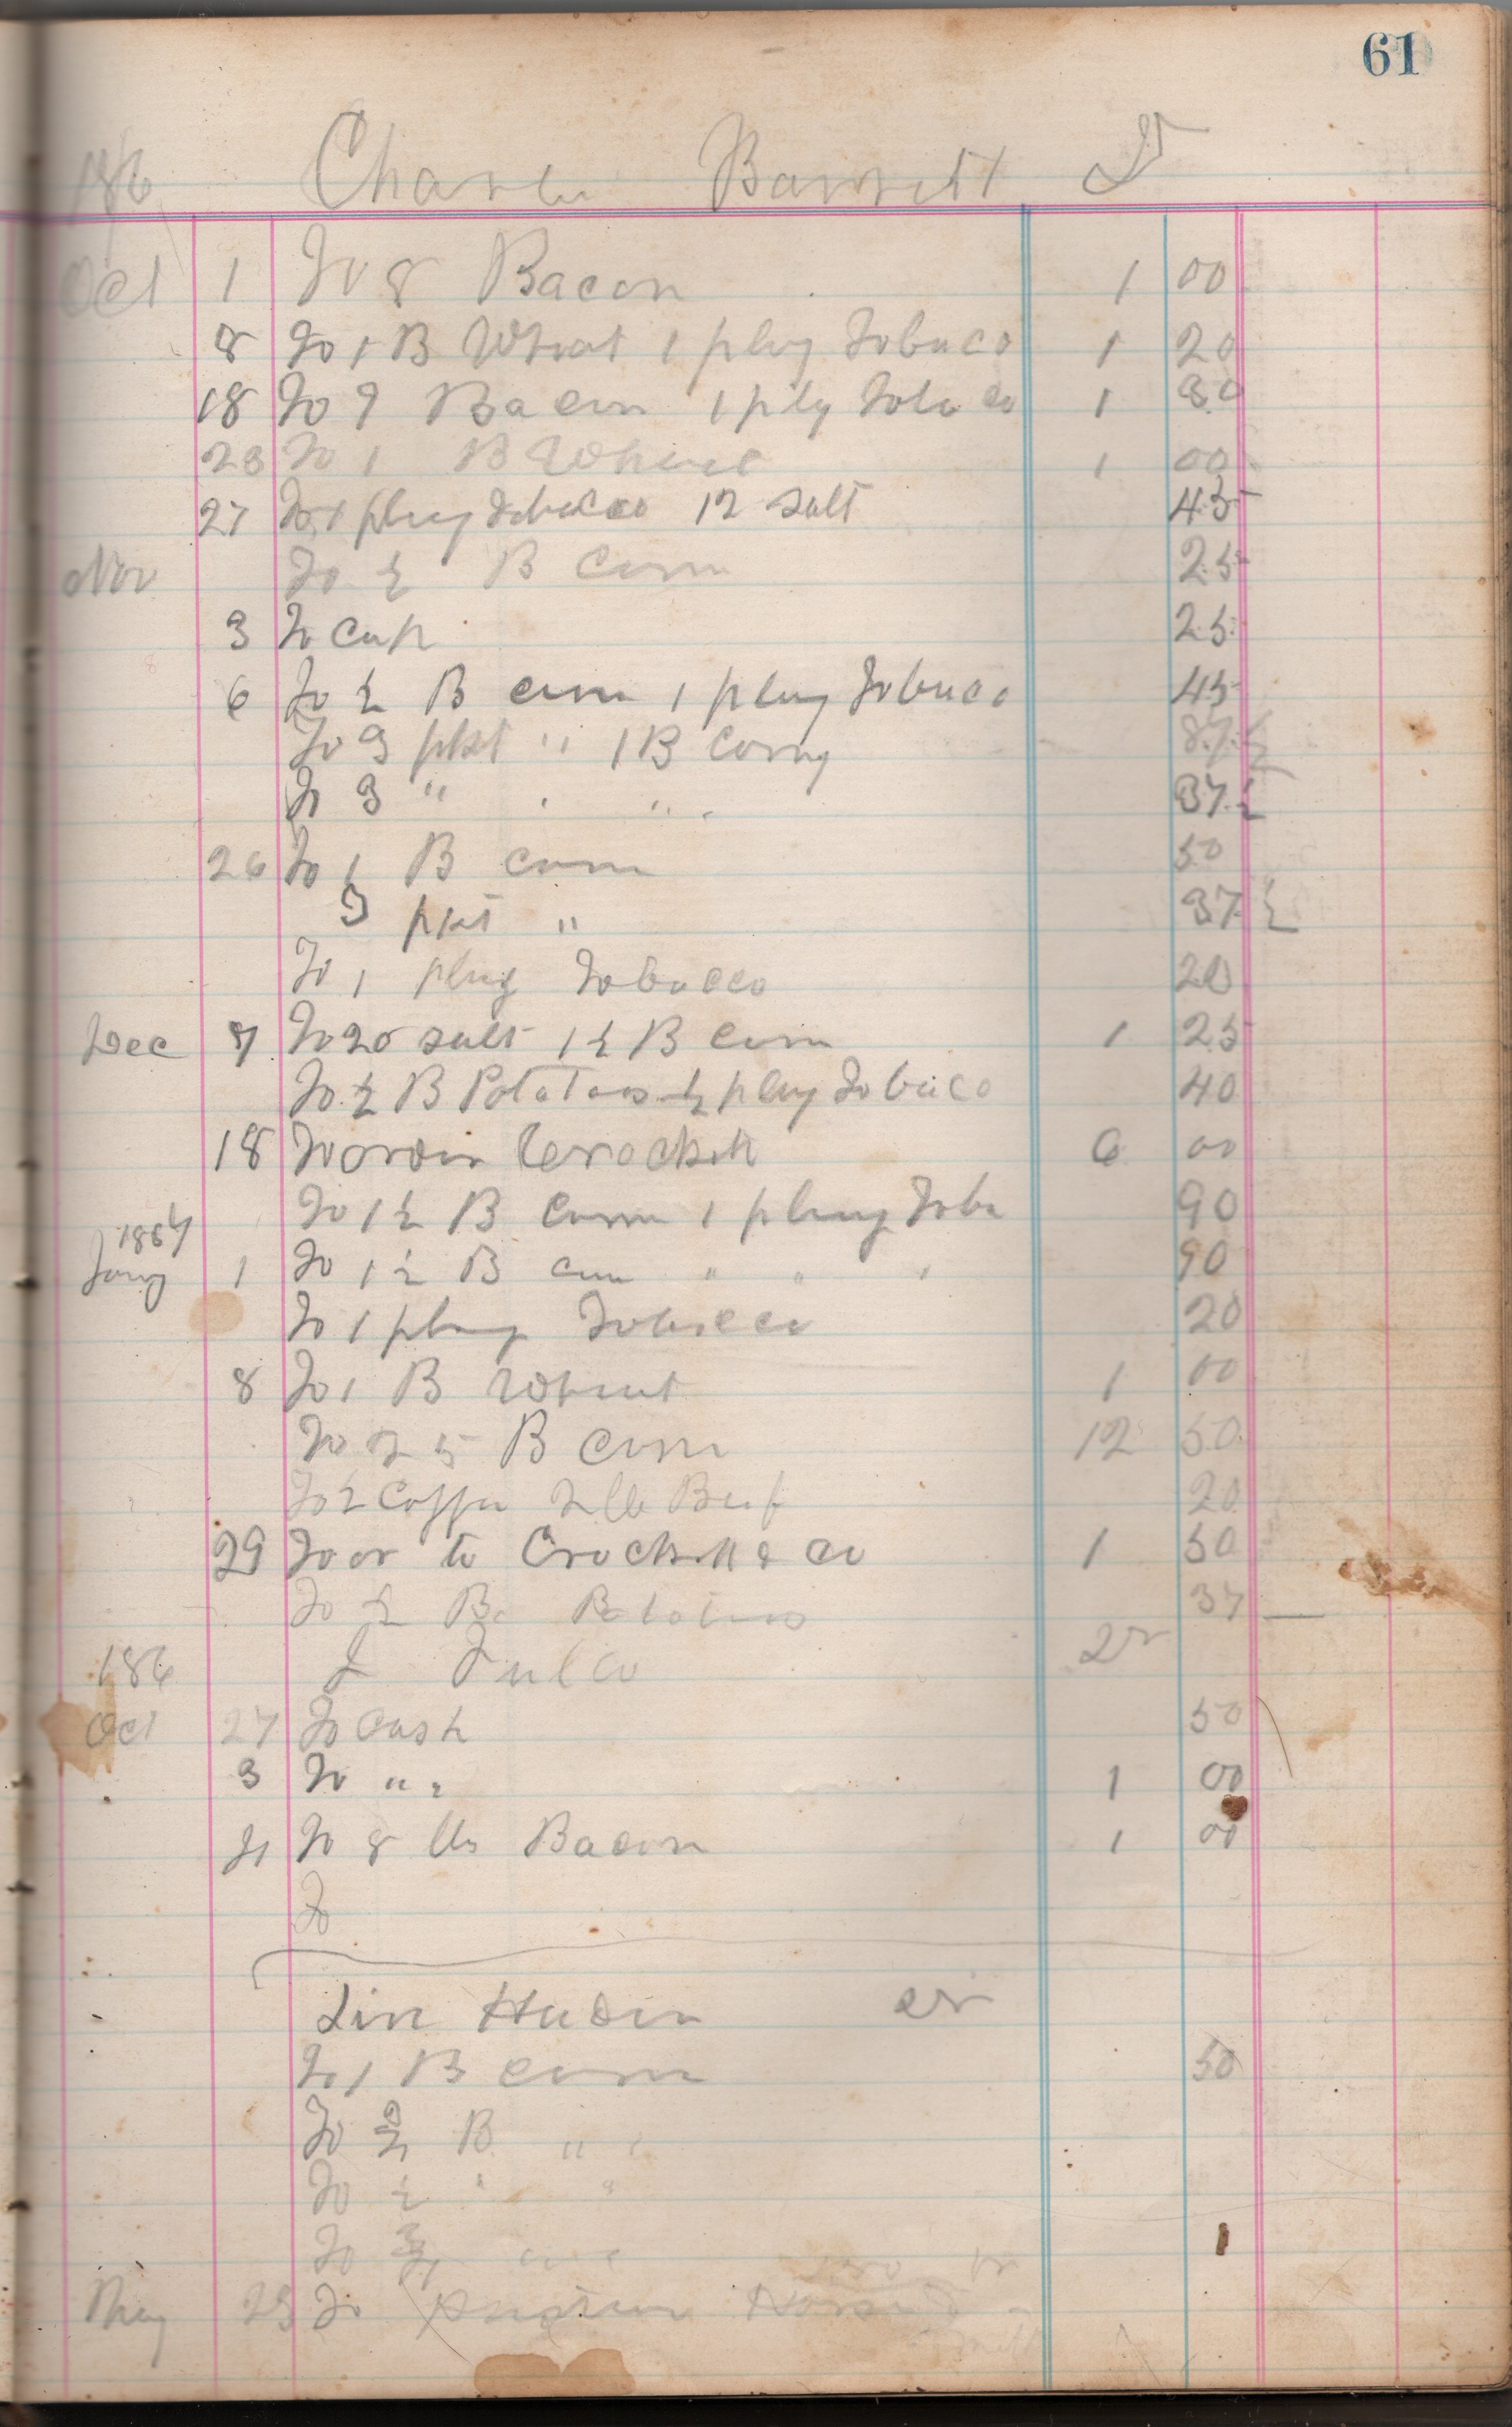 61
186 Charles Barrett Dr
Oct 1 To 8 Bacon 1 00
8 To 1 B Wheat 1 plug Tobaco 1 20
18 To 9 Bacon 1 plg Tobaco 1 30
23 To 1 B Wheat 1 00
27 To 1 plug Tobacco 12 salt 45
Nov To ½ B Corn 25
3 To Cash 25
6 To ½ B corn 1 plug Tobaco 45
To 3 pkt " 1 B Corn 87 ½
To 3 " " 37 ½
26 To 1 B corn 50
3 pkt " 37 ½
To 1 plug Tobacco 20
Dec 7 To 20 salt 1 ½ B corn 1 25
To ½ B Potatoes ½ plug Tobaco 40
18 To order Crockett 6 00
To 1 ½ B Corn 1 plug Toba 90
1867
Jany 1 To 1 ½ B corn " " " 90
To 1 plug Tobacco 20
8 To 1 B Wheat 1 00
To 25 B Corn 12 50
To ½ Coffee 2 lb Beef 20
29 To or to Crockett & Co 1 50
To ½ B Potatoes 37
186 Dr
Oct 27 To Cash 50
3 To " " 1 00
21 To 8 lbs Bacon 1 00
To
Lin Huden Dr
To 1 B corn 50
To B "
To ½ " "
To ¾
May 23 To